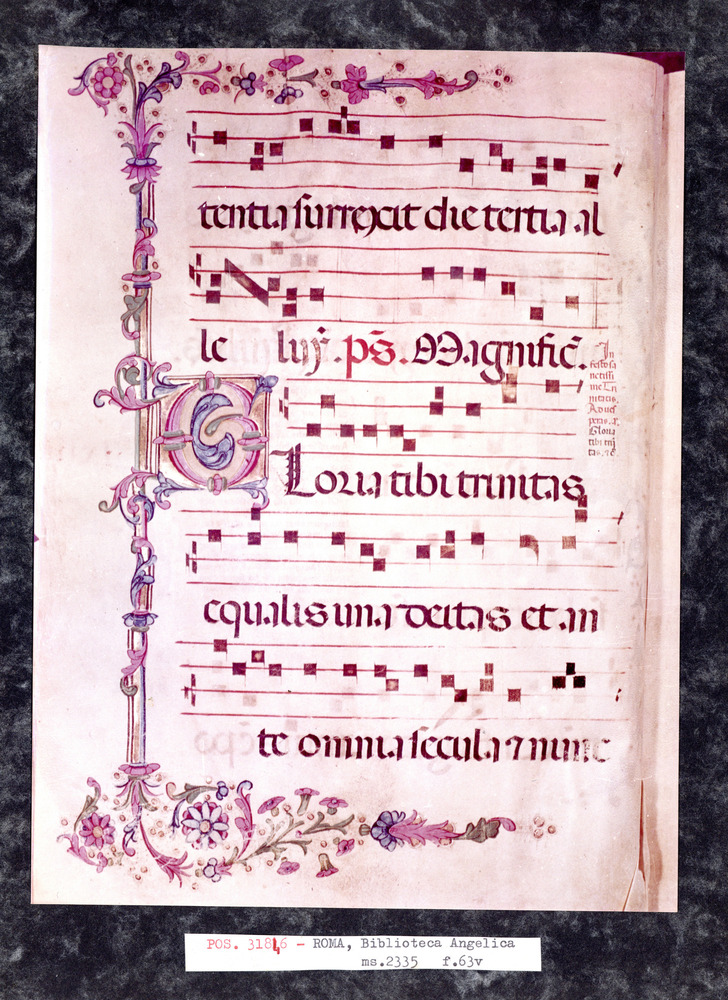 tentia surrexit die tertia al
le luỹ. ps̄. Magnific̄.
In
festo sa
nctissi
me Tri
nitatis.
Ad ves
peras. a.
Gloria
tibi tri
tas. ⁊c̄
GLoria tibi trinitas
equalis una deitas et an
te omnia secula ⁊ nunc
POS. 31846 - ROMA, Biblioteca Angelica
ms.2335 f.63v